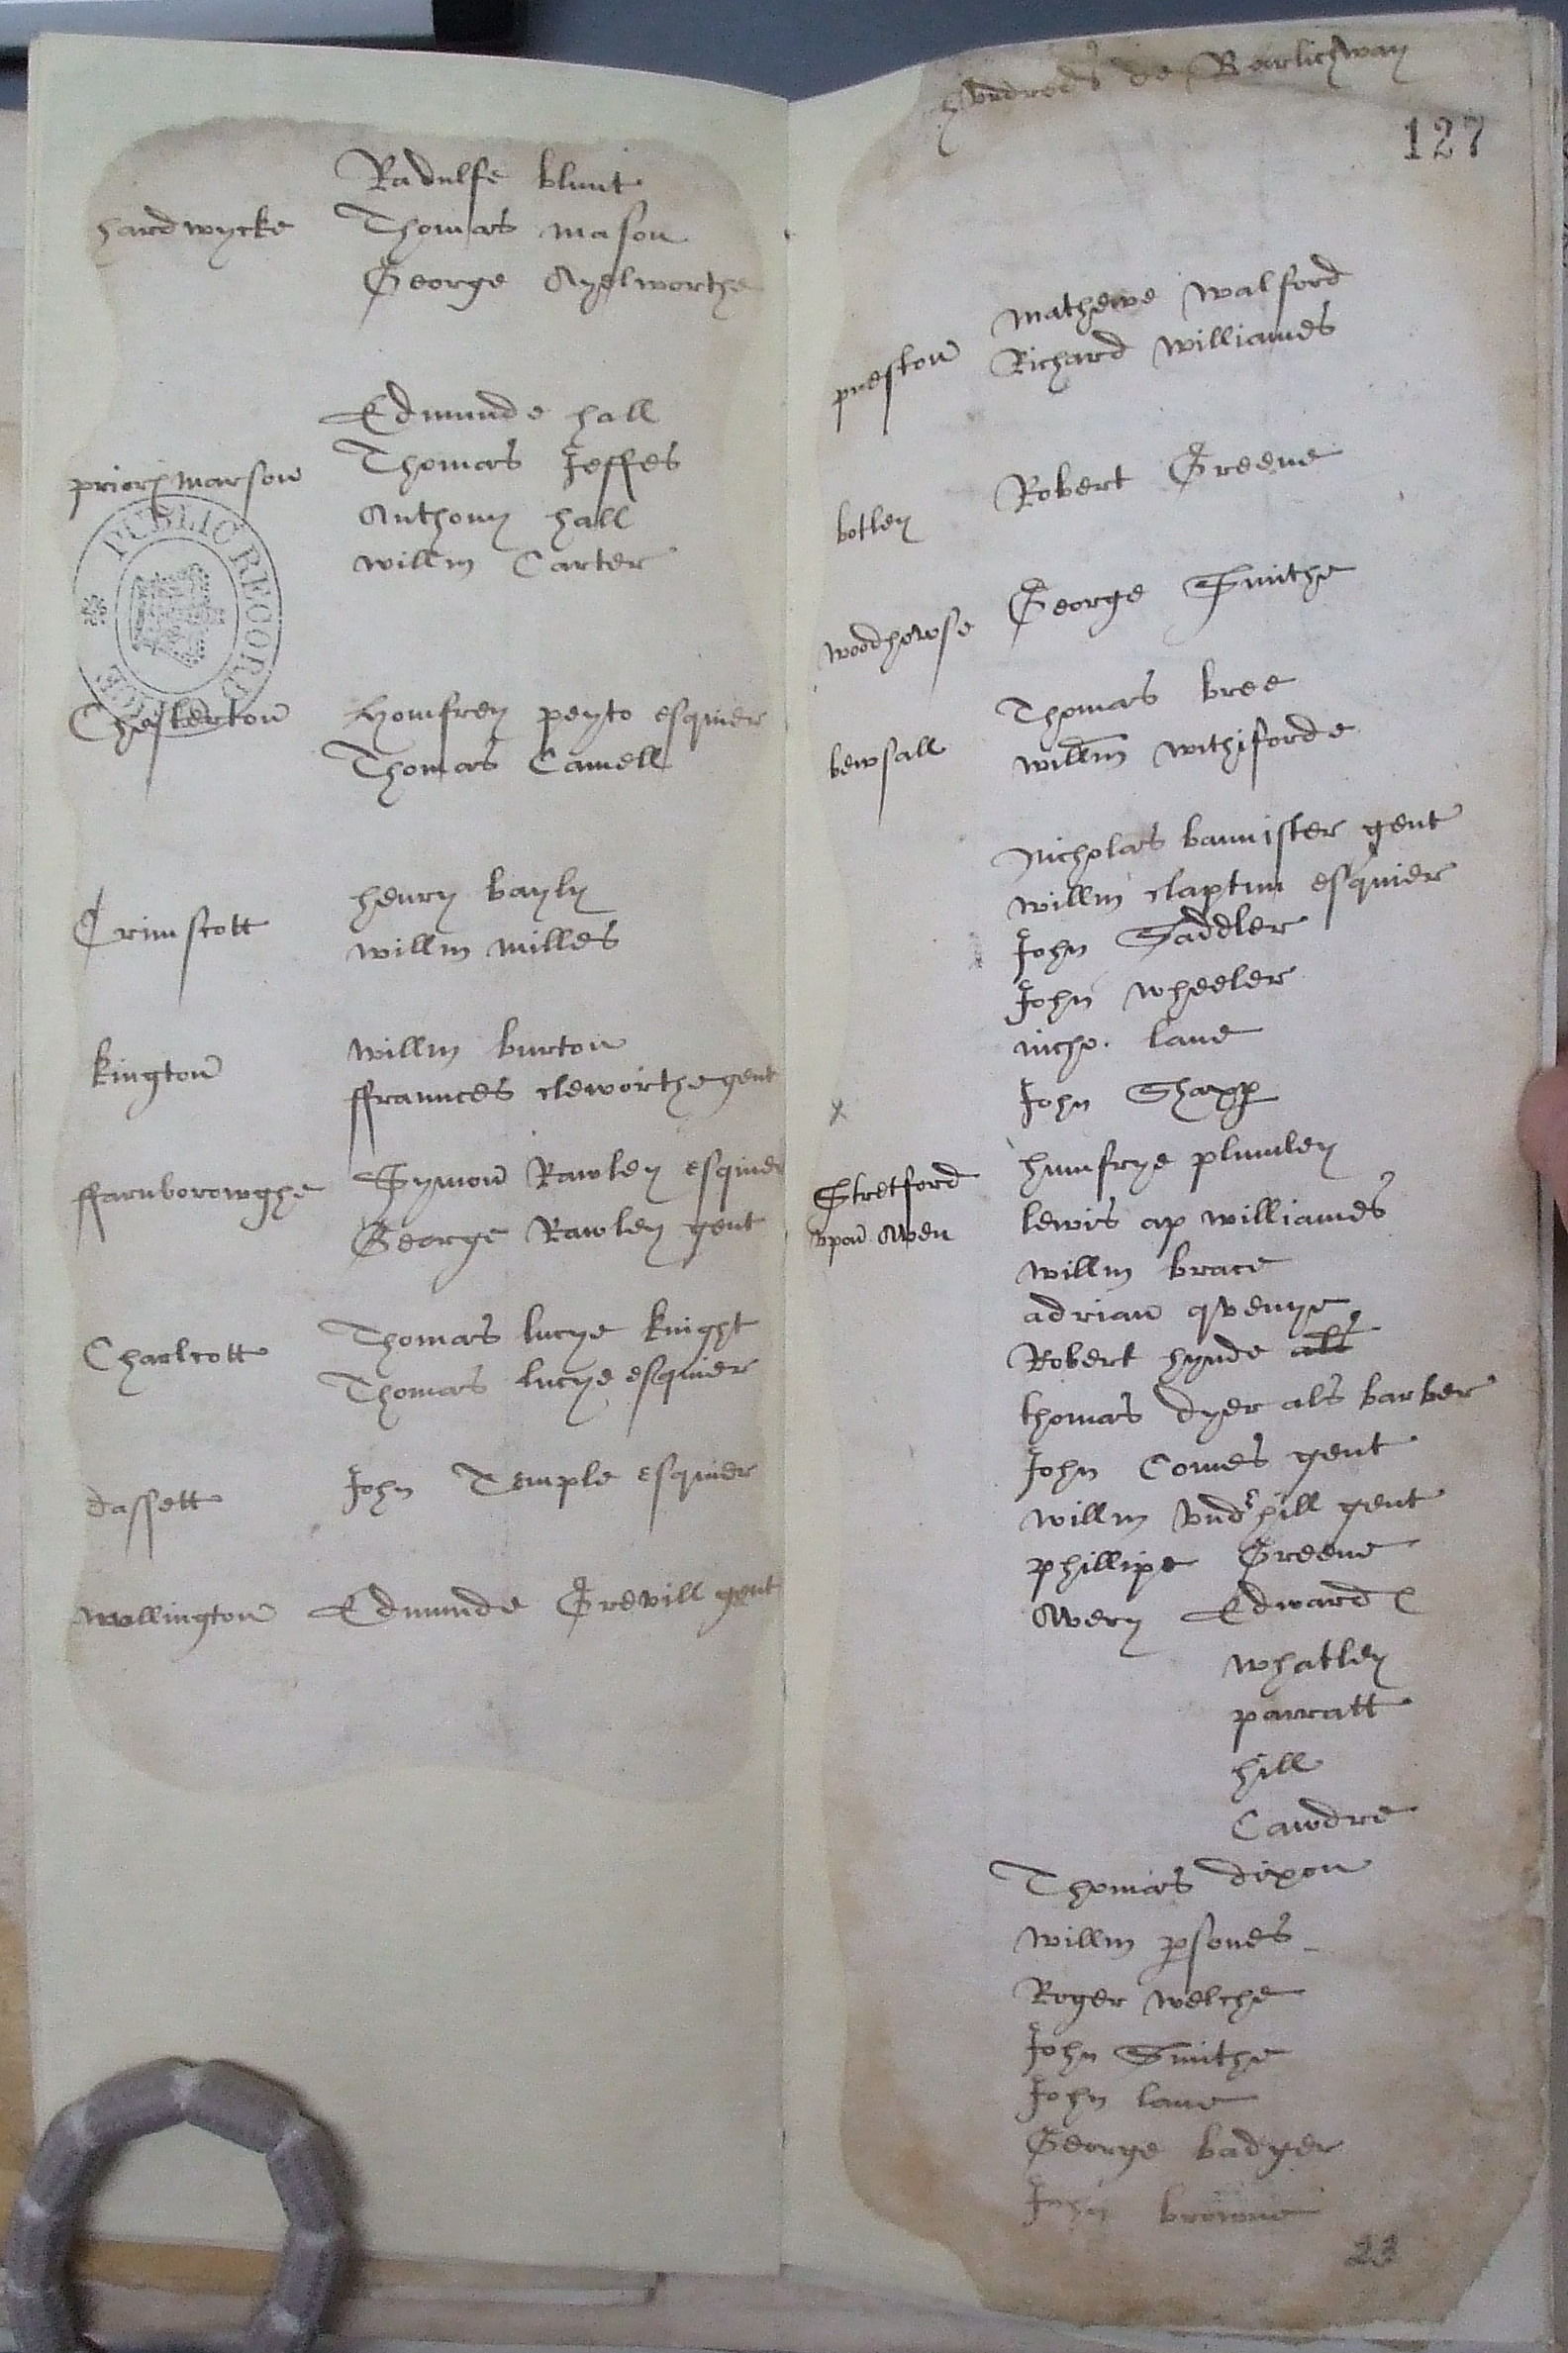 Radulfe blunt
hardwycke Thomas mason
George Ayelworthe
Edmunde hall
priors marson Thomas Jeffes
Anthony hall
willm Carter
PUBLIC RECORD
Chesterton Homfrey peyto esquier
Thomas Camell
Crimscott henry bayly
willm milles
kington willm burton
ffraunces cleworthe gent
ffarnborowghe Symon Rawley esquier
George Rawley gent
Charlcott Thomas lucye knight
Thomas lucye esquier
dassett John Temple esquier
wellington Edmunde Grevill gent
hundred de Barlichway
127
preston mathewe walford
Richard williames
botley Robert Greene
woodhowse George Smithe
bewsall Thomas bree
willm withiforde
Nicholas bannister gent
willm claptun esquier
John Saddler
John wheeler
nicho. lane
x John Sharpp
Stretford humfrye plumley
vpon Aven lewis ap williames
willm brace
adrian qvenye
Robert hynde als
thomas dyer als barber
John Comes gent
willm vndrhill gent
phillipe Greene
Avery Edwardes
whatley
parratt
hill
Cawdre
Thomas dixon
willm psones
Roger welche
John Smithe
John lane
George badger
John browne
23